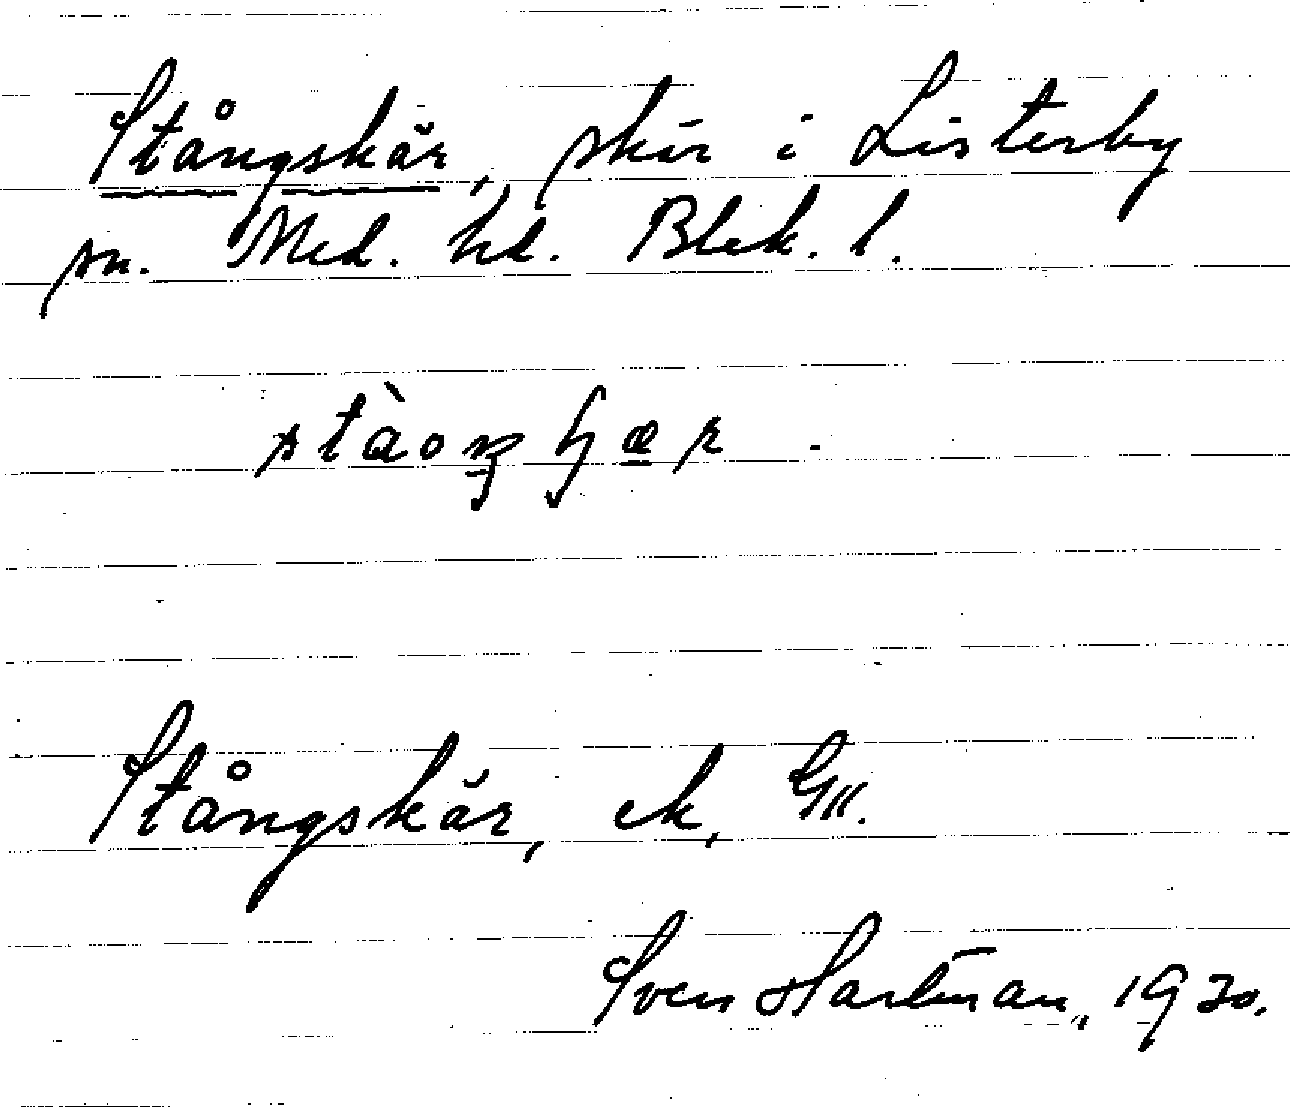 Stångskär, skär i Listerby
sn. Med. hd. Blek. l.
Stångskär, ek, GK.
Sven Hartman, 1930.